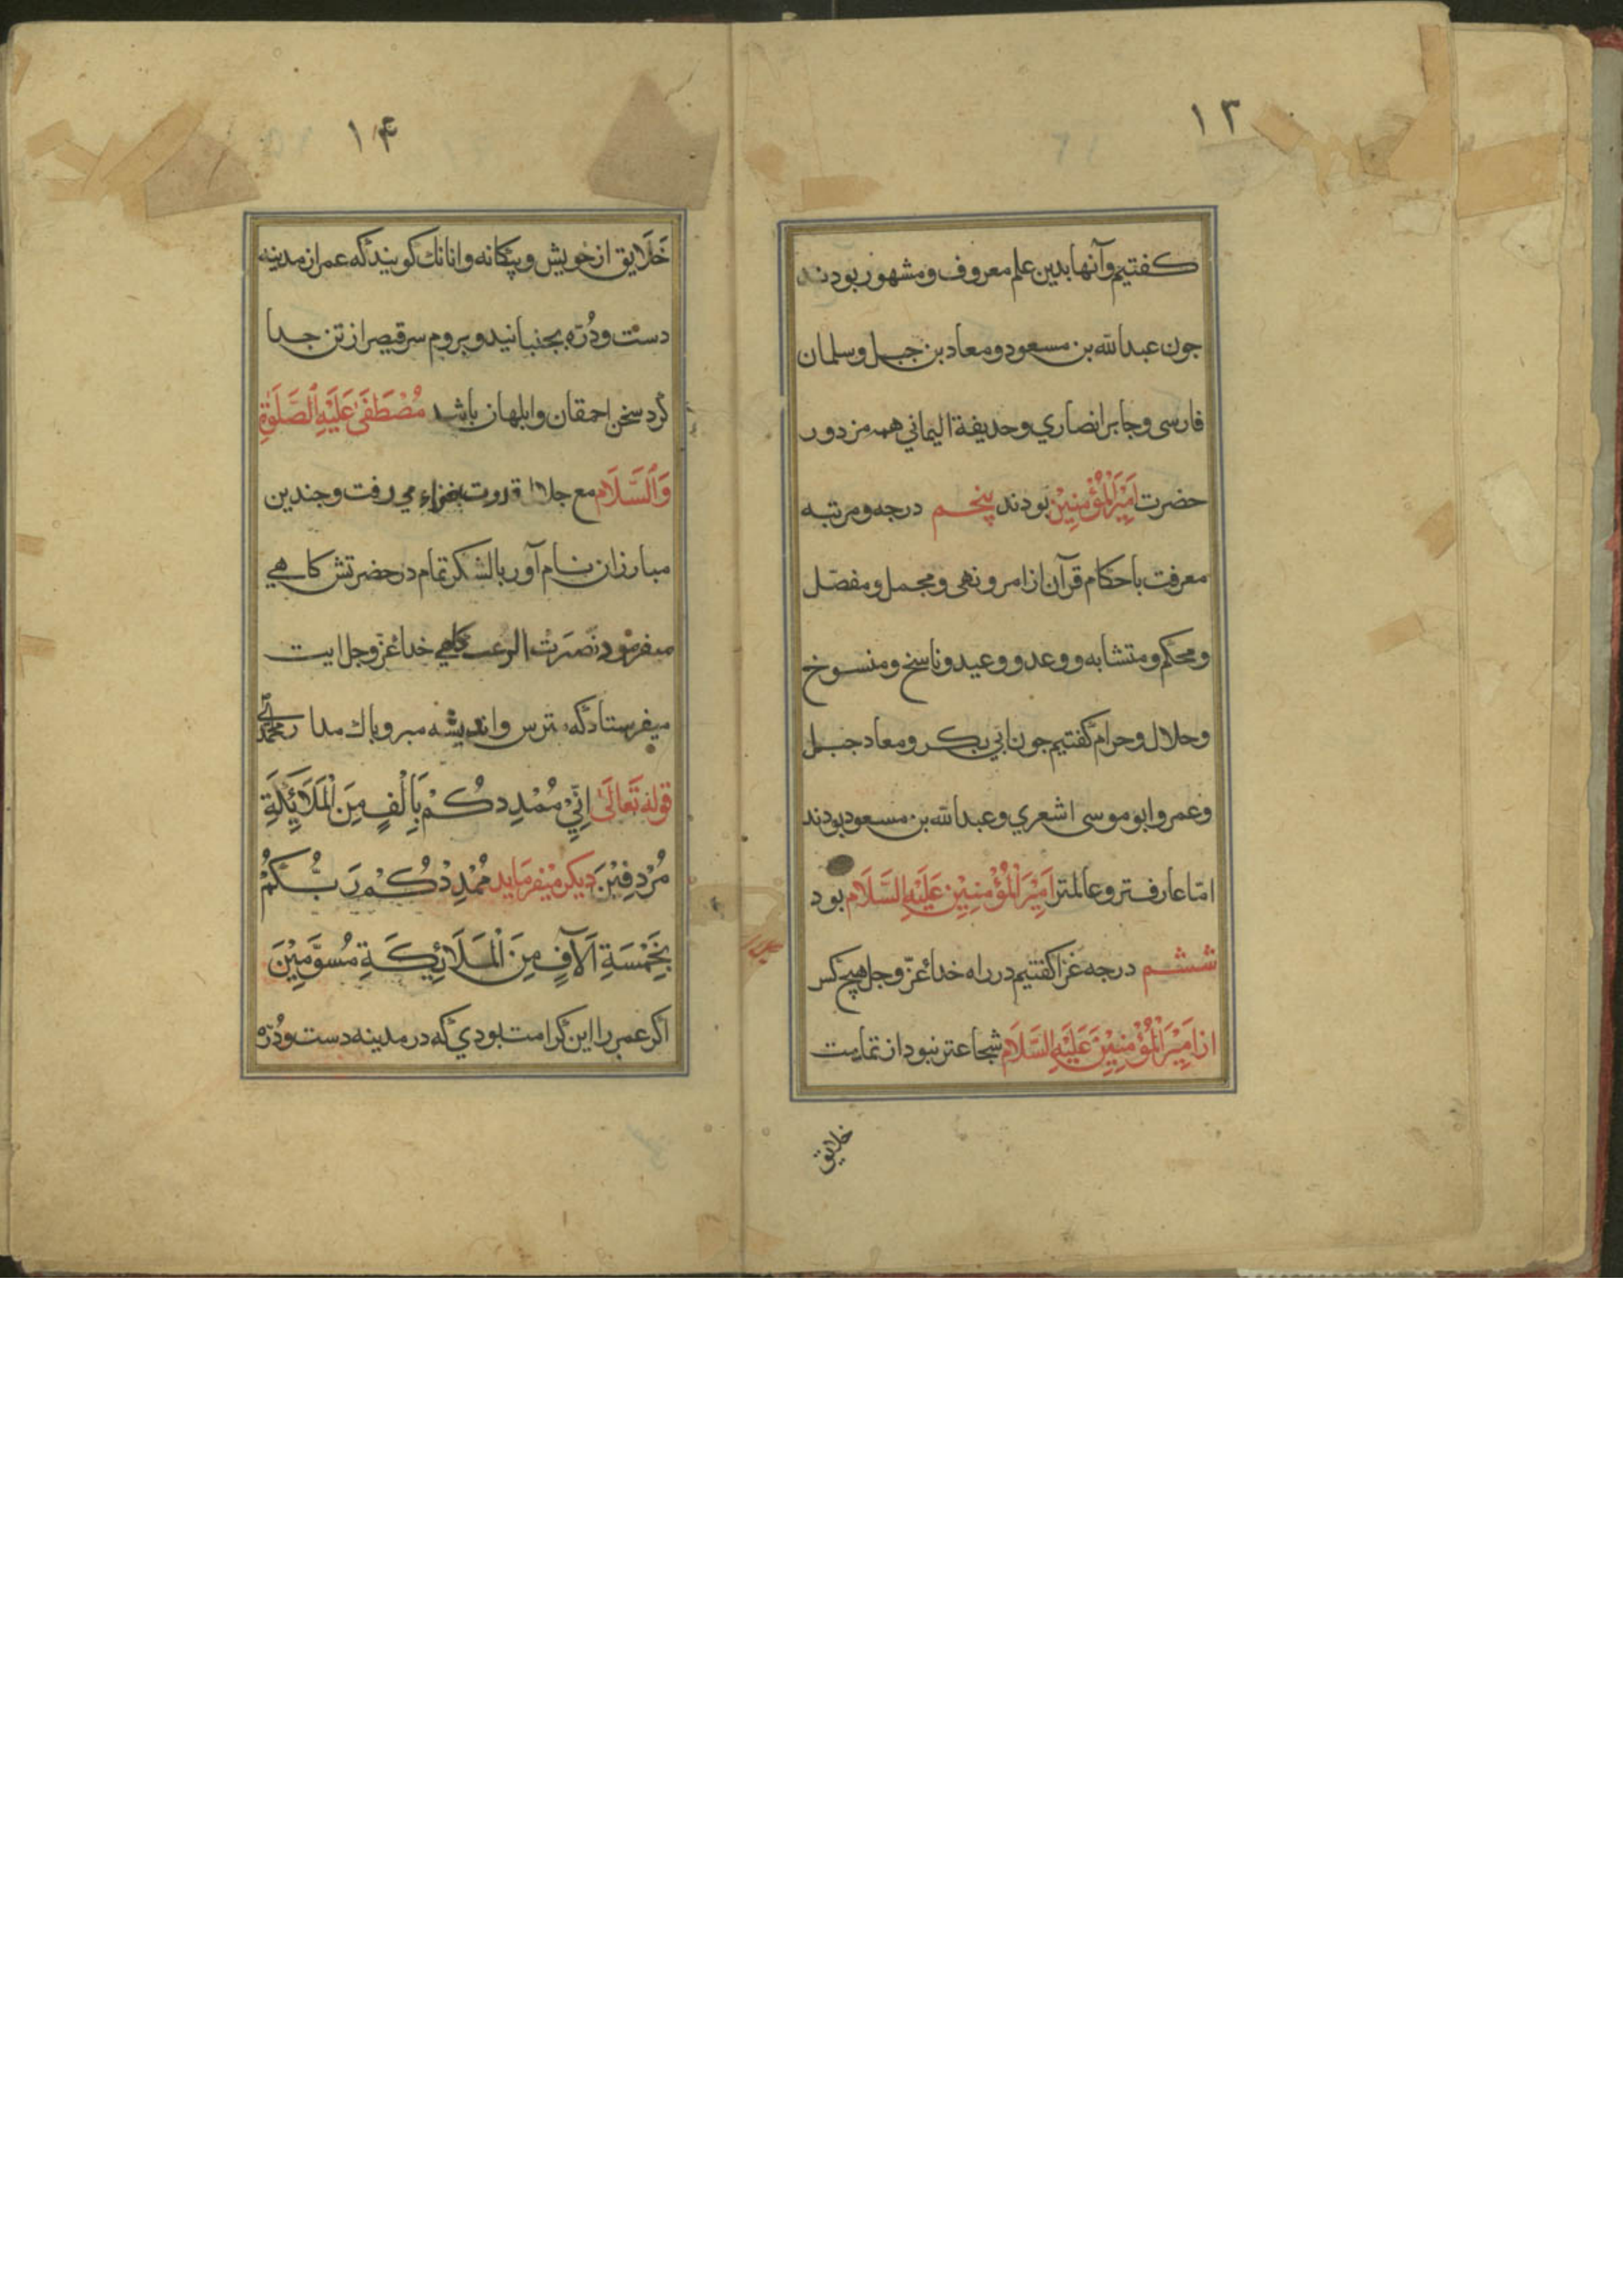 ١٣
كفتيم وآنها بدين علم معروف ومشهور بودند
جون عبدالله بن مسعود ومعاد بن جبل وسلمان
فارسى وجابر انصاري وحديفة اليماني همه مزدور
حضرت اَمِيْرَالْمُؤْمِنِيْن بودند پنجم درجه ومرتبه
معرفت باحكام قرآن از امر ونهى ومجمل ومفصّل
ومحكم ومتشابه ووعد ووعيد وناسخ ومنسوخ
وحلال وحرام كفتيم جون ابي بكر ومعاد جبل
وعمر وابو موسى اشعري وعبدالله بن مسعود بودند
امّا عارفتر وعالمتر اَمِيْرَالْمُؤْمِنِيْن عَلَيْهِ السَّلَام بود
ششم درجه غزا كفتيم در راه خداعزّوجل هيچ كس
از اَمِيْرَالْمُؤْمِنِيْنَ عَلَيْهِ السَّلَام شجاعتر نبود از تمامت
خلايق
١۴
خَلَايق از خويش وبيكانه وانانك كويند كه عمر از مدينه
دست ودُرّه بجنبانيد وبروم سر قيصر از تن جدا
كرد سخن احمقان وابلهان باشد مُصْطَفَىٰ عَلَيْهِ الصَّلَوٰةِ
وَالسَّلَام مع جلالة قدرت بغزاء مي رفت وجندين
مبارزان نام آور بالشكر تمام در حضرتش كاهي
ميفرمود نصرت بالرعب كاهي خداعزّوجل ايت
ميفرستاد كه ترس وانديشه مبر وباك مدار
قوله تَعَالَىٰ اِنِّيْ مُمْدِدكُمْ بِاَلْفٍ مِنَ الْمَلَائِكَةِ
مُرْدِفِيْنَ ديكر ميفرمايد مُمْدِدْكُمْ رَبُّكُمْ
بِخَمْسَةِ اٰلَافٍ مِنَ الْمَلَائِكَةِ مُسَوَّمِيْنَ
اكر عمر را اين كرامت بودي كه در مدينه دست ودُرّه